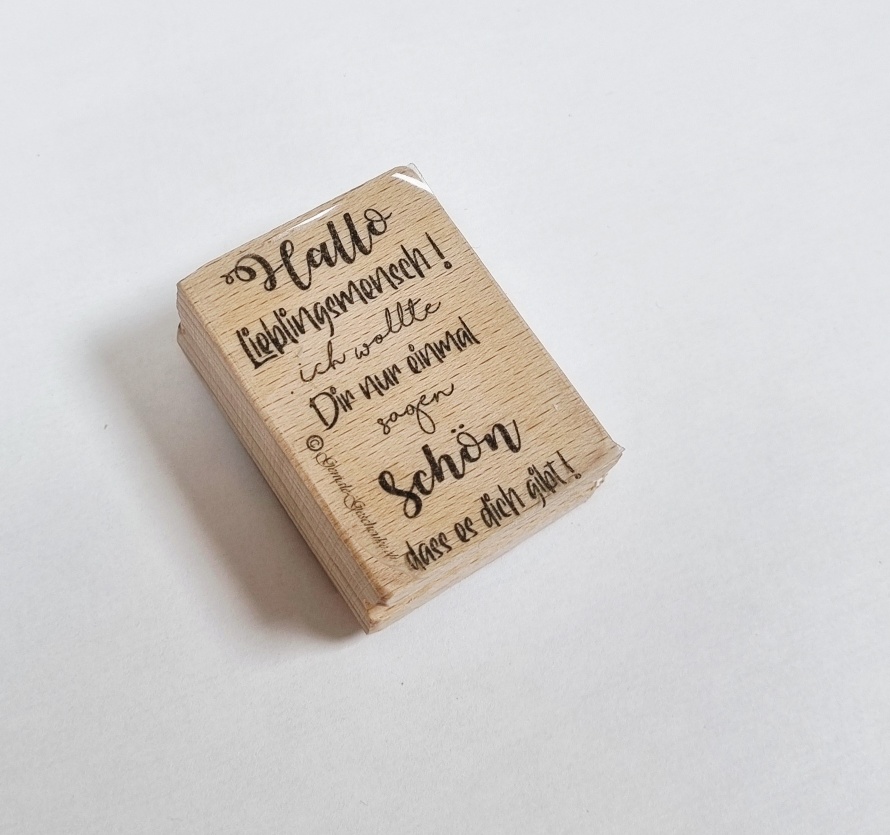 Hallo
Lieblingsmensch!
ich wollte
Dir nur einmal
sagen
Schön
dass es dich gibt!
©